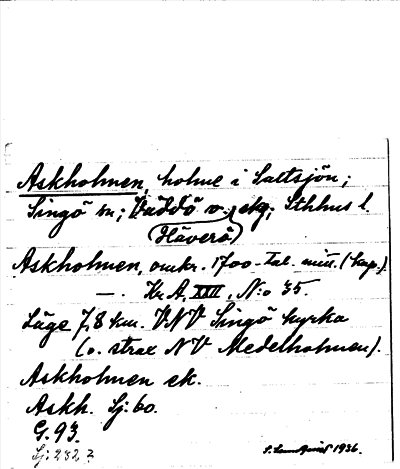 Askholmen, holme i Saltsjön;
Singö sn; Väddö o. skg; Sthlms l.
(Häverö)
Askholmen, omkr. 1700-tal. mitt. (kop.).
—. Kr. A, XXII, N:o 35.
Läge 7,8 km. VNV Singö kyrka
(o. strax NV Medelholmen).
Askholmen ek.
Askh. Sj. 60.
G. 93.
Sj: 232 2
S. Lundqvist 1936.